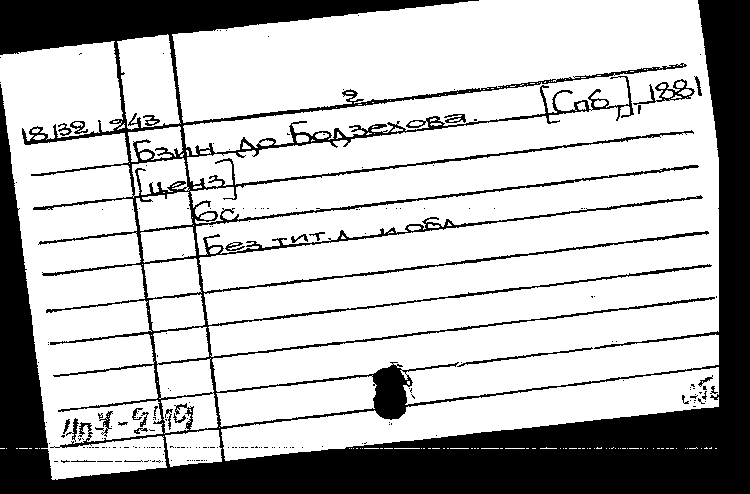 2
18.132.1.243
Бзин до Бодзехова. [Спб,], 1881
[ценз]
6с
Без тит. л. и обл